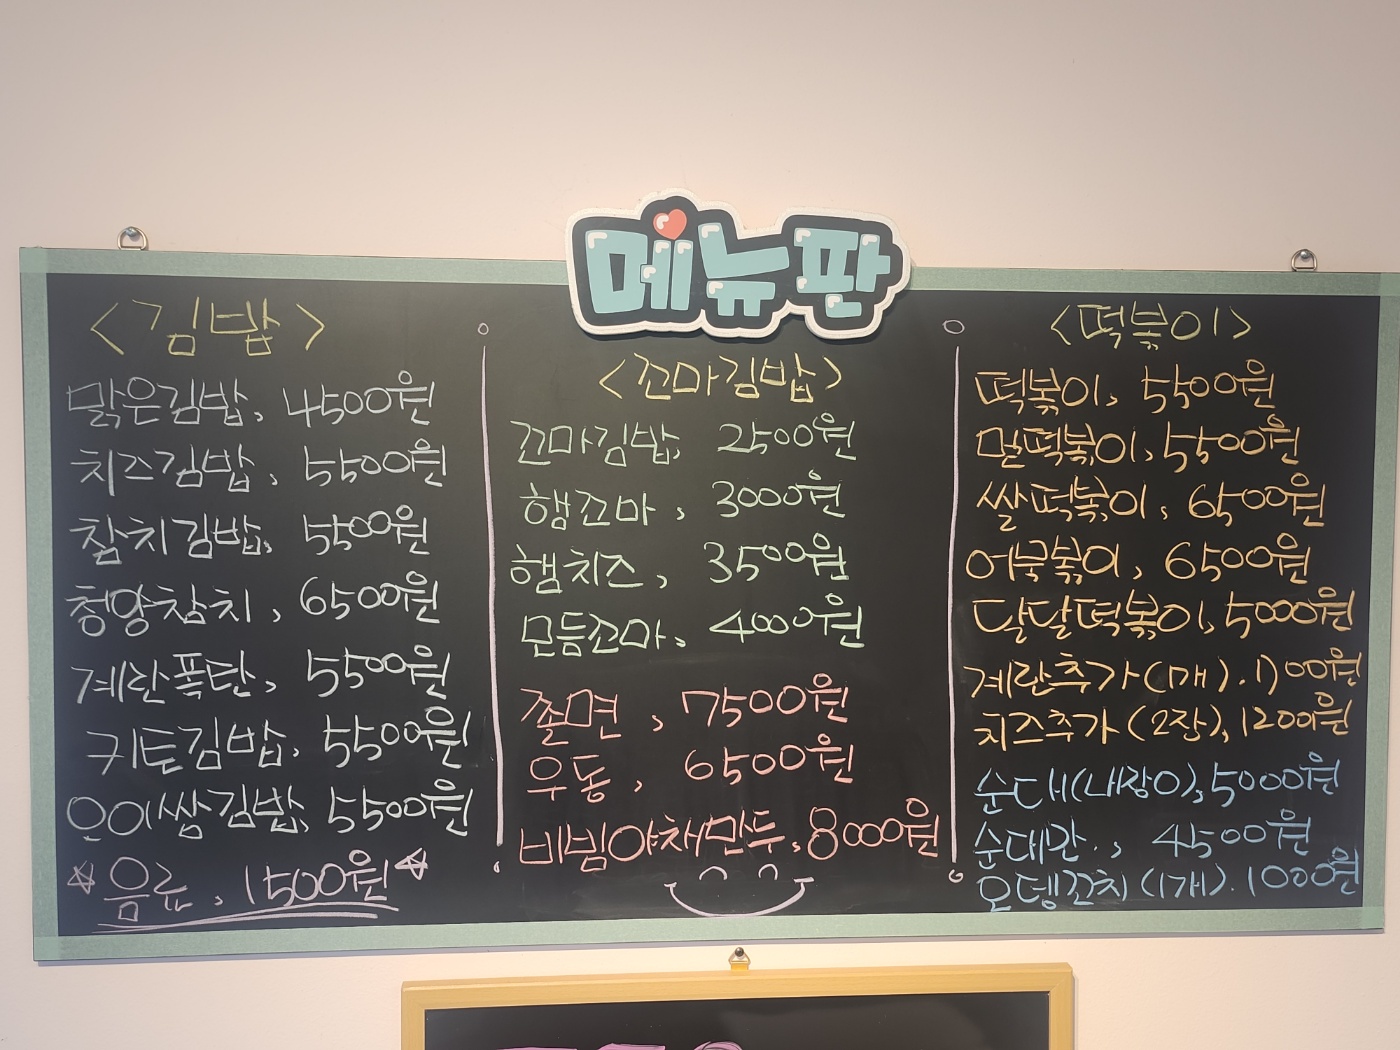 메뉴판
<김밥>
맑은김밥, 4500원
치즈김밥, 5500원
참치김밥, 5500원
청양참치, 6500원
계란폭탄, 5500원
키토김밥, 5500원
오이쌈김밥, 5500원
☆음료, 1500원☆
<꼬마김밥>
꼬마김밥, 2500원
햄꼬마, 3000원
햄치즈, 3500원
모듬꼬마, 4000원
쫄면, 7500원
우동, 6500원
비빔야채만두, 8000원
<떡볶이>
떡볶이, 5500원
밀떡볶이, 5500원
쌀떡볶이, 6500원
어묵볶이, 6500원
달달떡볶이, 5000원
계란추가(1개). 1,000원
치즈추가(2장), 1200원
순대(내장O), 5000원
순대간., 4500원
오뎅꼬치(1개). 1000원